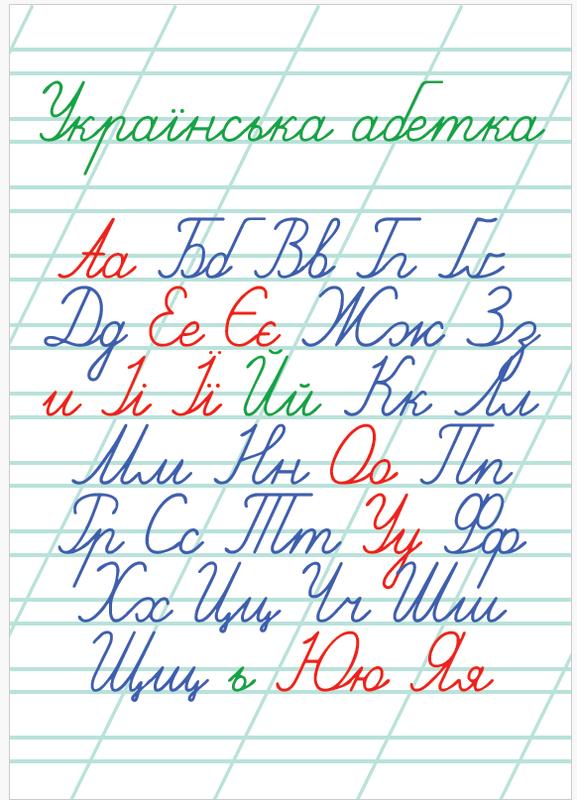 Українська абетка
Аа Бб Вв Гг Ґґ
Дд Ее Єє Жж Зз
и Іі Її Йй Кк Лл
Мм Нн Оо Пп
Рр Сс Тт Уу Фф
Хх Цц Чч Шш
Щщ ь Юю Яя